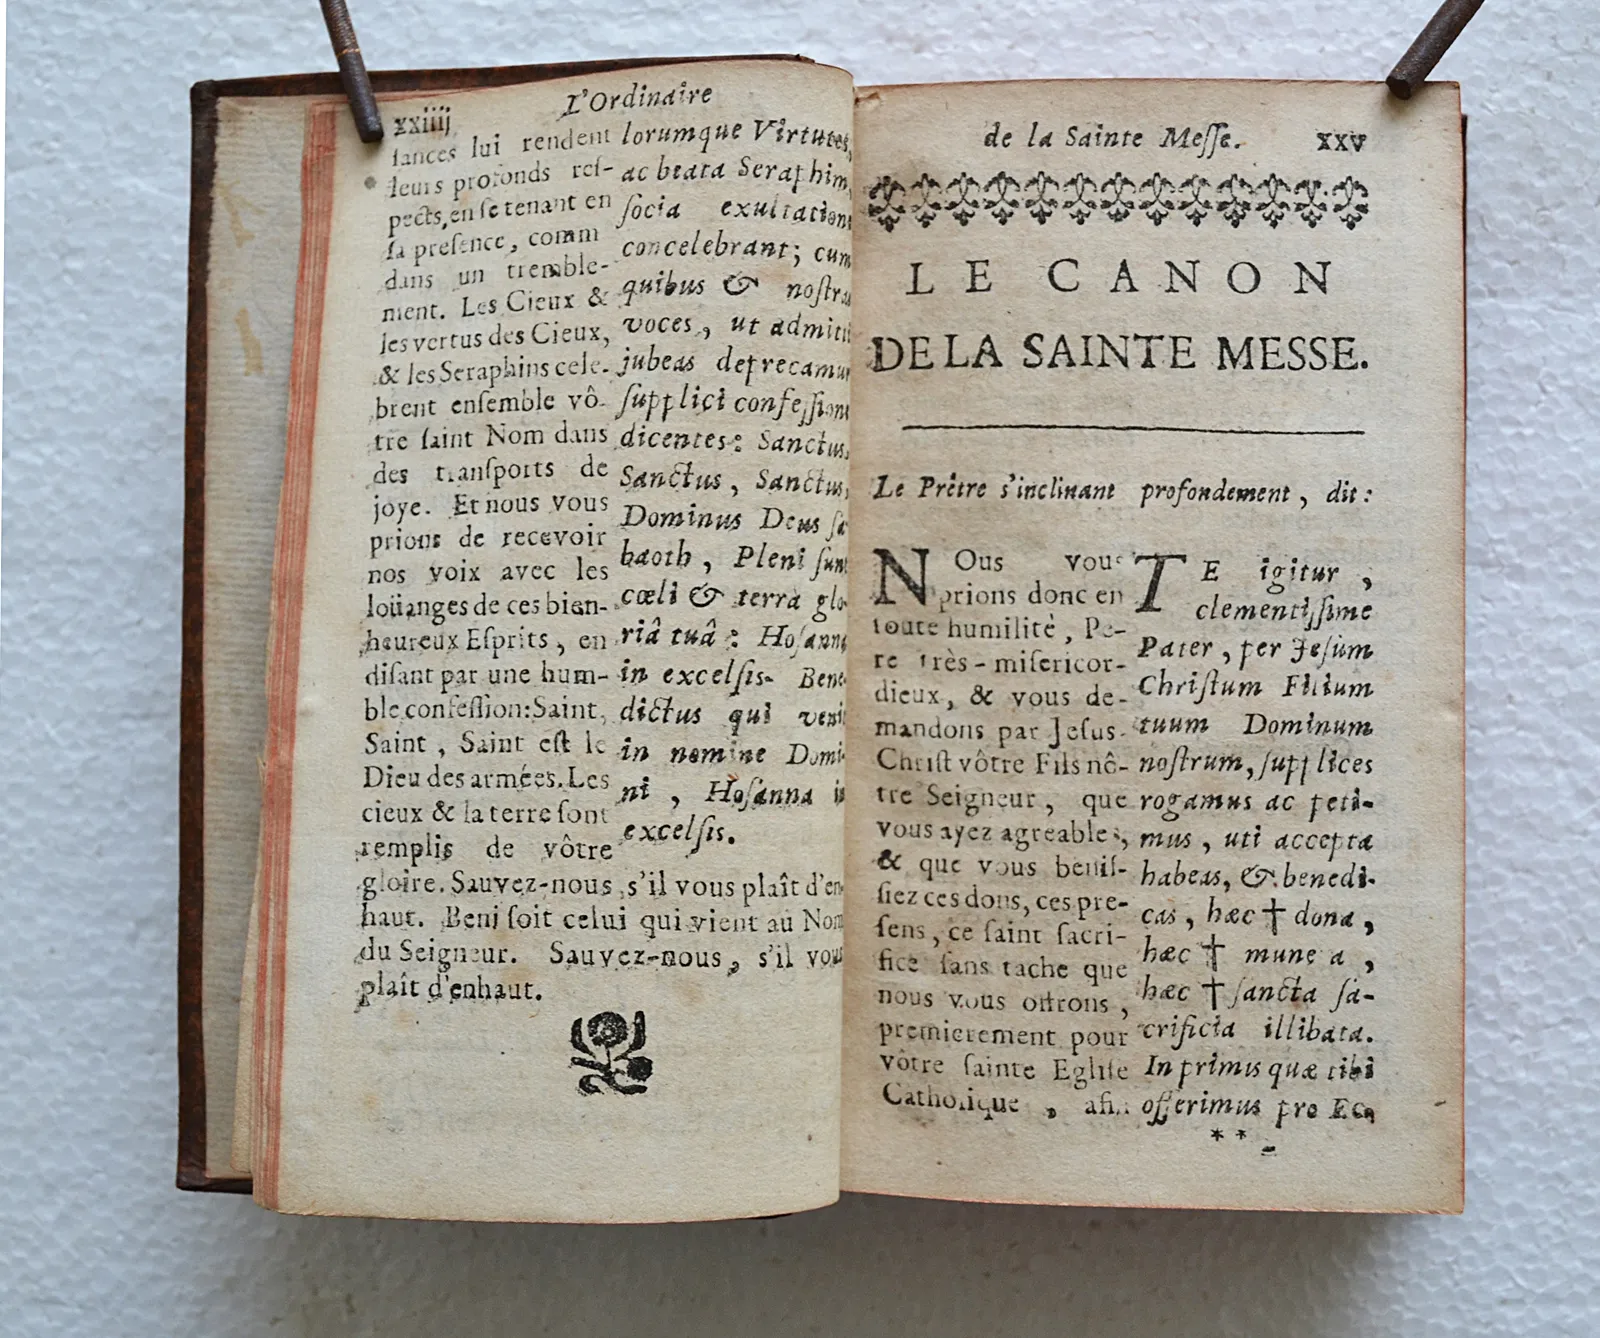 xxiiij
L'Ordinaire
ſances lui rendent
leurs profonds reſ-
pects, en ſe tenant en
ſa preſence, comm
dans un tremble-
ment. Les Cieux &
les vertus des Cieux,
& les Seraphins cele-
brent enſemble vô-
tre ſaint Nom dans
des tranſports de
joye. Et nous vous
prions de recevoir
nos voix avec les
loüanges de ces bien-
heureux Eſprits, en
diſant par une hum-
ble confeſſion: Saint,
Saint, Saint eſt le
Dieu des armées. Les
cieux & la terre ſont
remplis de vôtre
lorumque Virtutes,
ac beata Seraphim,
ſocia exultation
concelebrant; cum
quibus & noſtra
voces, ut admitti
jubeas deprecamur
ſupplici confeſſione
dicentes: Sanctus,
Sanctus, Sanctus,
Dominus Deus ſa
baoth, Pleni ſunt
cœli & terra glo-
riâ tuâ: Hoſanna
in excelſis. Bene
dictus qui venit
in nomine Domi-
ni, Hoſanna in
excelſis.
gloire. Sauvez-nous, s'il vous plaît d'en
haut. Beni ſoit celui qui vient au Nom
du Seigneur. Sauvez-nous, s'il vous
plaît d'enhaut.
de la Sainte Meſſe. xxv
LE CANON
DE LA SAINTE MESSE.
Le Prêtre s'inclinant profondement, dit:
NOus vous
prions donc en
toute humilité, Pe-
re très-miſericor-
dieux, & vous de-
mandons par Jeſus-
Chriſt vôtre Fils nô-
tre Seigneur, que
vous ayez agreables,
& que vous beniſ-
ſiez ces dons, ces pre-
ſens, ce ſaint ſacri-
fice ſans tache que
nous vous offrons,
premierement pour
vôtre ſainte Egliſe
Catholique, afin
TE igitur,
clementiſſime
Pater, per Jeſum
Chriſtum Filium
tuum Dominum
noſtrum, ſupplices
rogamus ac peti-
mus, uti accepta
habeas, & benedi-
cas, hæc † dona,
hæc † mune a,
hæc † ſancta ſa-
crificia illibata.
In primis quæ tibi
offerimus pro Ec-
**